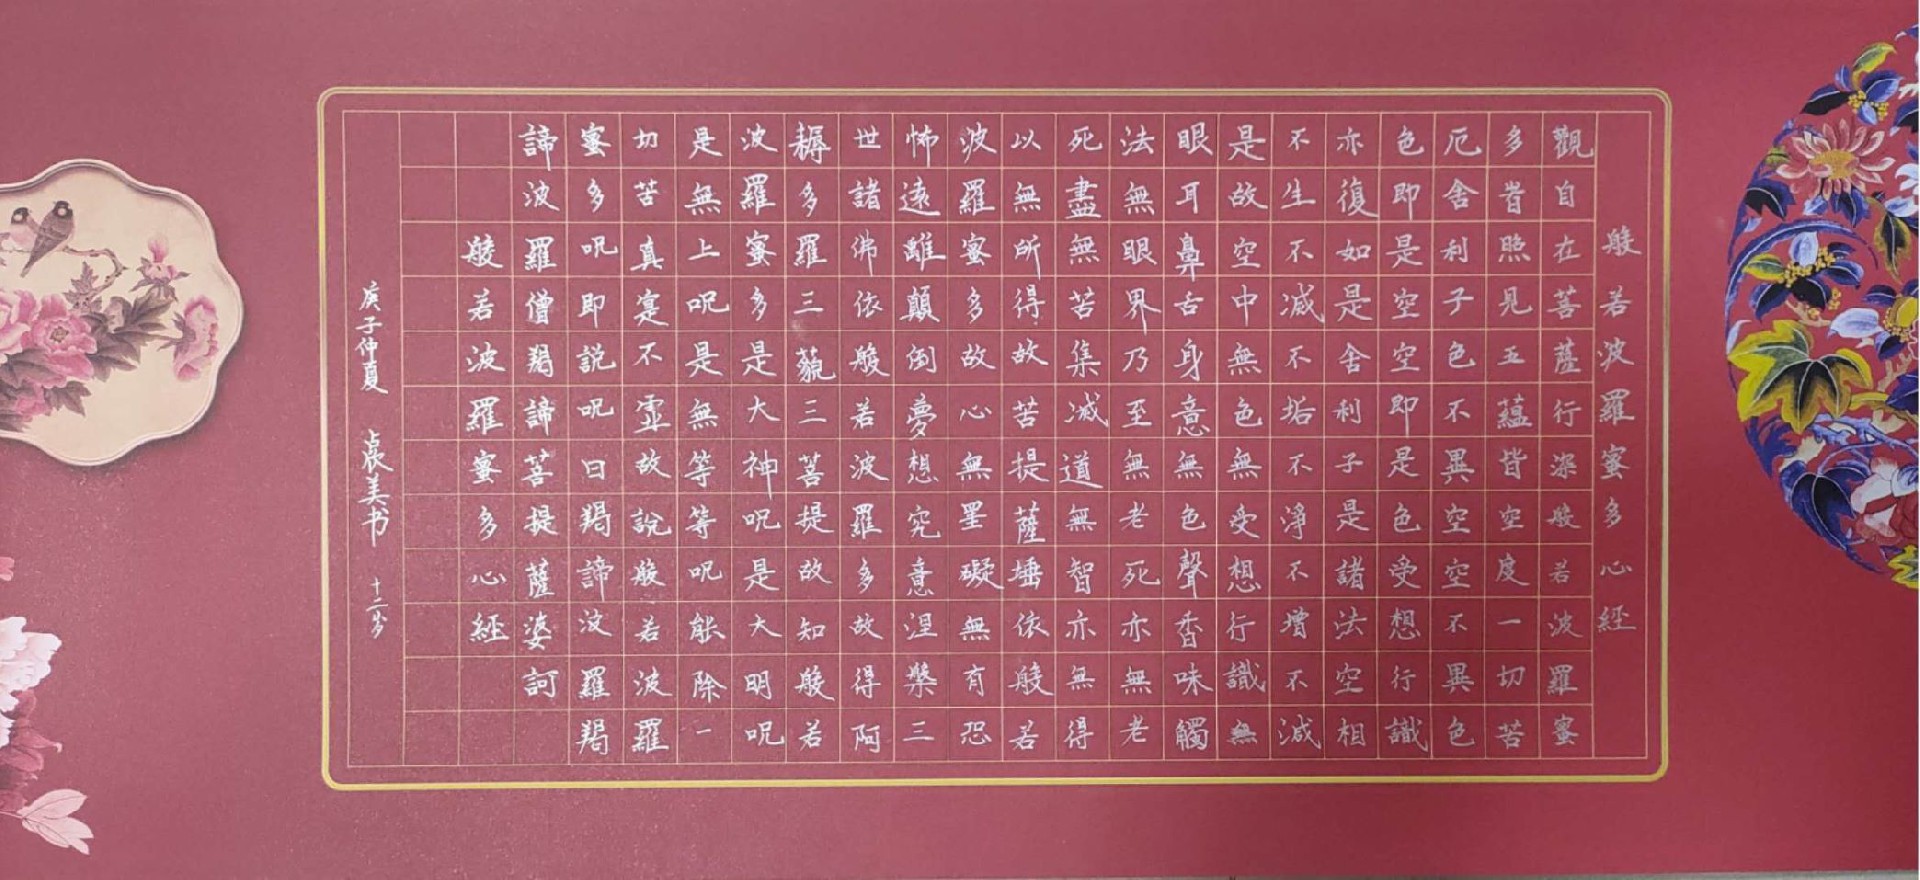 般若波羅蜜多心經
觀自在菩薩行深般若波羅蜜
多時照見五蘊皆空度一切苦
厄舍利子色不異空空不異色
色即是空空即是色受想行識
亦復如是舍利子是諸法空相
不生不滅不垢不淨不增不減
是故空中無色無受想行識無
眼耳鼻舌身意無色聲香味觸
法無眼界乃至無老死亦無老
死盡無苦集滅道無智亦無得
以無所得故苦提薩埵依般若
波羅蜜多故心無罣礙無有恐
怖遠離顛倒夢想究意涅槃三
世諸佛依般若波羅多故得阿
耨多羅三藐三菩提故知般若
波羅蜜多是大神呪是大明呪
是無上呪是無等等呪能除一
切苦真寔不虛故說般若波羅
蜜多呪即説呪曰羯諦波羅羯
諦波羅僧羯諦菩提薩婆訶
般若波羅蜜多心經
庚子仲夏 美书 十二岁